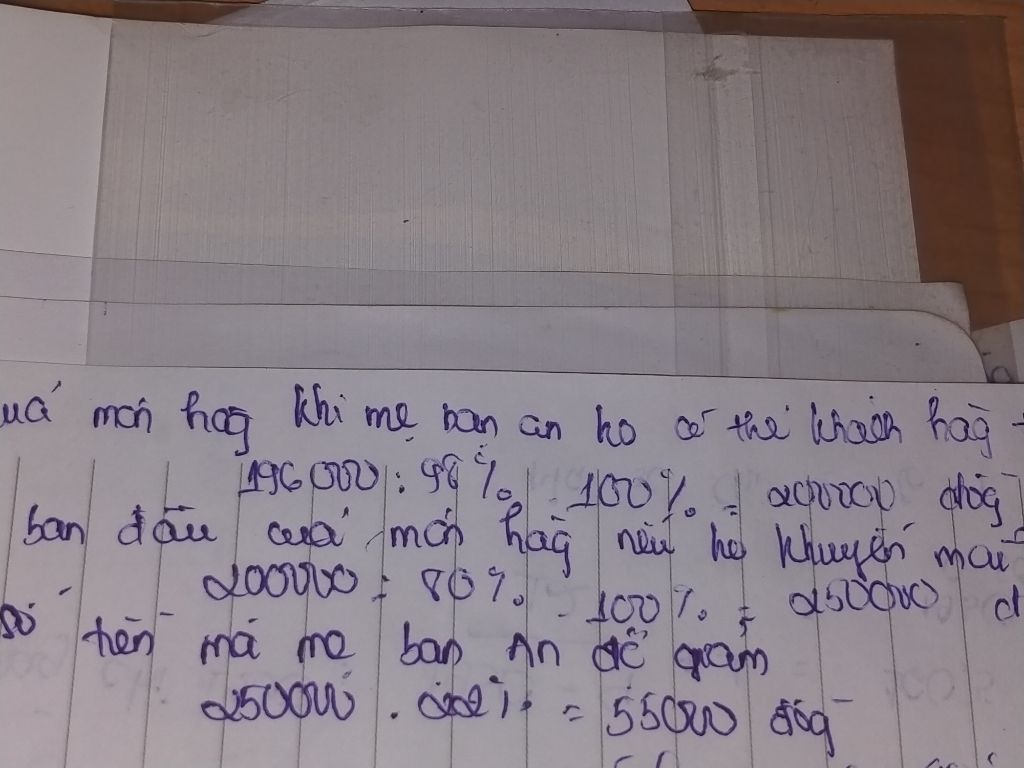 uả món hag khi mẹ bạn an ko có thẻ khách hàg
196000 : 98% . 100% = 200000 đồg
ban đầu cuả món hàg nếu ko khuyến maĩ
200000 : 80% . 100% = 250000 đ
số tiền mà mẹ bạn An đc̃ giảm
250000 . 22% = 55000 đồg